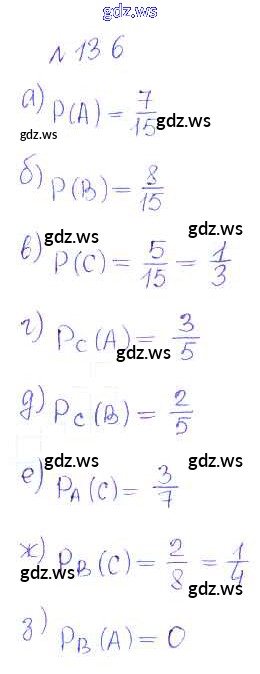 gdz.ws
№ 136
а) P(A) = 7/15
gdz.ws
gdz.ws
б) P(B) = 8/15
gdz.ws
gdz.ws
в) P(C) = 5/15 = 1/3
gdz.ws
г) P_C(A) = 3/5
gdz.ws
gdz.ws
д) P_C(B) = 2/5
gdz.ws
gdz.ws
е) P_A(C) = 3/7
gdz.ws
ж) P_B(C) = 2/8 = 1/4
gdz.ws
gdz.ws
з) P_B(A) = 0
gdz.ws